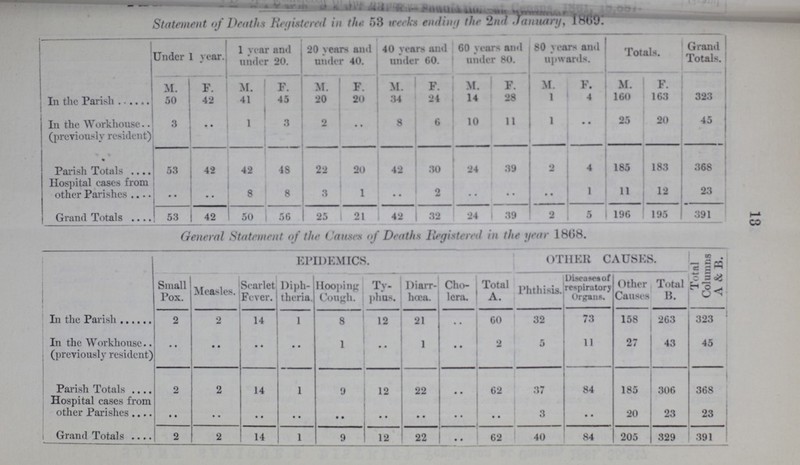 Statement of Deaths Registered in the 53 weeks ending the 2nd January, 1869.
Under 1 year. 1 year and under 20. 20 years and under 40. 40 years and under 60. 60 years and under 80. 80 years and upwards. Totals. Grand Totals.
M. F. M. F. M. F. M. F. M. F. M. F. M. F.
In the Parish ...... 50 42 41 45 20 20 34 24 14 28 1 4 160 163 323
In the Workhouse.. 3 .. 1 3 2 .. 8 6 10 11 1 .. 25 20 45
(previously resident)
Parish Totals .... 53 42 42 48 22 20 42 30 24 39 2 4 185 183 368
Hospital cases from
other Parishes .... .. .. 8 8 3 1 .. 2 .. .. .. 1 11 12 23
Grand Totals .... 53 42 50 56 25 21 42 32 24 39 2 5 196 195 391
13
General Statement of the Causes of Deaths Registered in the year 1868.
EPIDEMICS. OTHER CAUSES. Total Columns A & B.
Small Pox. Measles. Scarlet Fever. Diphtheria. Hooping Cough. Typhus. Diarrhœa. Cholera. Total A. Phthisis. Diseases of respiratory Organs. Other Causes Total B.
In the Parish ...... 2 2 14 1 8 12 21 .. 60 32 73 158 263 323
In the Workhouse.. .. .. .. .. 1 .. 1 .. 2 5 11 27 43 45
(previously resident)
Parish Totals .... 2 2 14 1 9 12 22 .. 62 37 84 185 306 368
Hospital cases from
other Parishes .... .. .. .. .. .. .. .. .. .. 3 .. 20 23 23
Grand Totals .... 2 2 14 1 9 12 22 .. 62 40 84 205 329 391